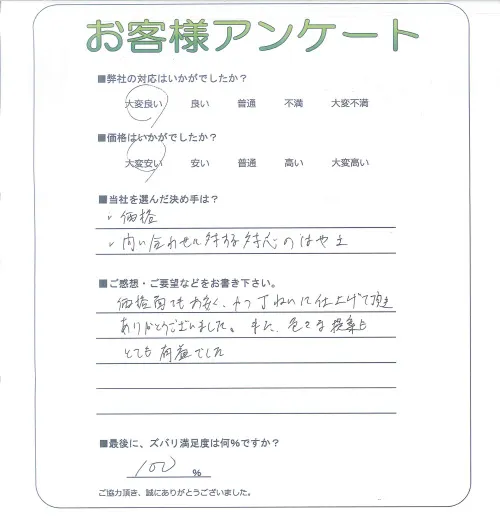 お客様アンケート
■弊社の対応はいかがでしたか？
大変良い 良い 普通 不満 大変不満
■価格はいかがでしたか？
大変安い 安い 普通 高い 大変高い
■当社を選んだ決め手は？
・価格
・問い合わせに対する対応のはやさ
■ご感想・ご要望などをお書き下さい。
価格面でも安く、かつ丁ねいに仕上げて頂き
ありがとうございました。また、色々な提案も
とても有益でした
■最後に、ズバリ満足度は何％ですか？
100 ％
ご協力頂き、誠にありがとうございました。